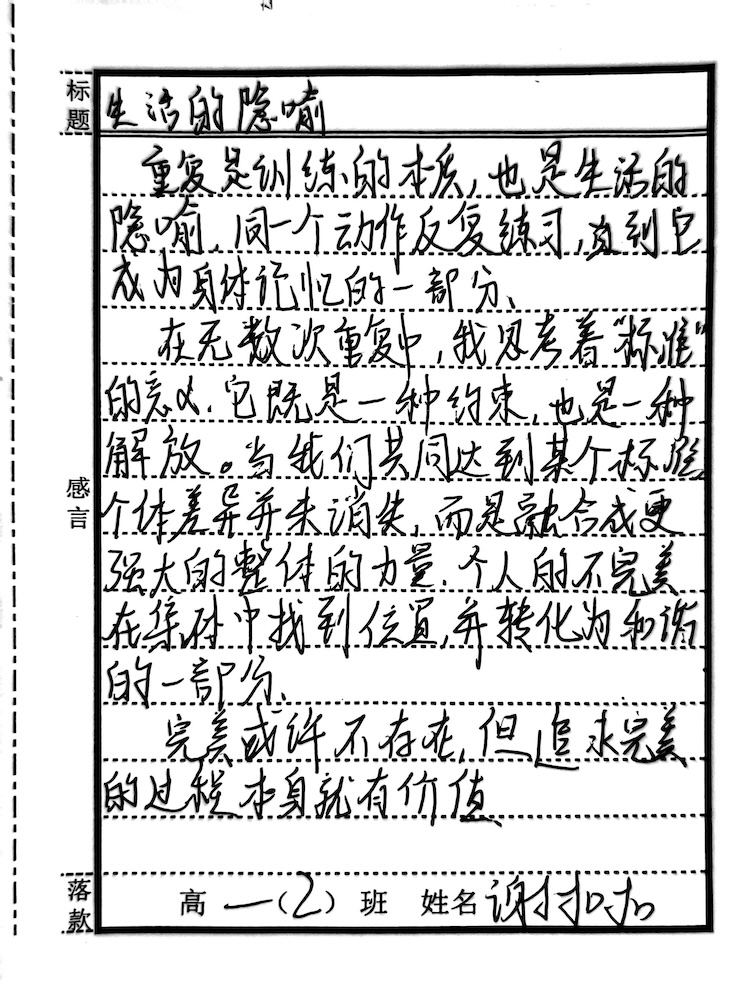 标题
生活的隐喻
重复是训练的本质,也是生活的
隐喻,同一个动作反复练习,直到它
成为身体记忆的一部分、
在无数次重复中,我思考着"标准"
的意义.它既是一种约束,也是一种
解放。当我们共同达到某个标准
个体差异并未消失,而是融合成更
强大的整体的力量.个人的不完美
在集体中找到位置,并转化为和谐
的一部分、
完美或许不存在,但追求完美
的过程本身就有价值.
感言
落款
高一(2)班 姓名 谢